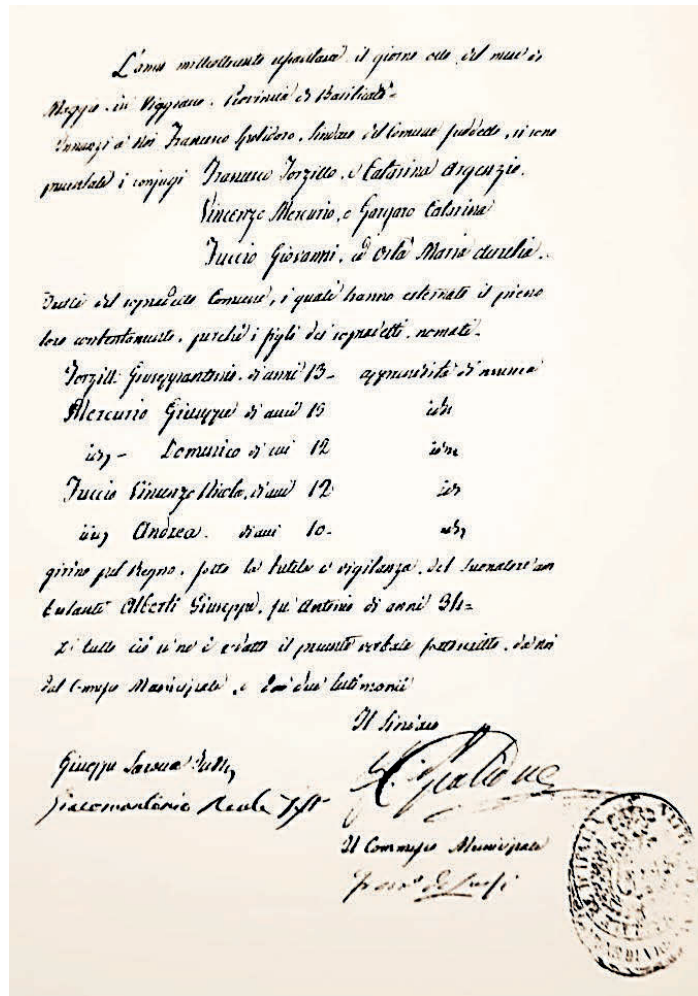 L'anno milleottocento settantasei il giorno otto del mese di
Maggio in Viggiano. Provincia di Basilicata
Innanzi a Noi Francesco Spolidoro, Sindaco del Comune suddetto, si sono
presentati i conjugi Francesco Torzillo, e Catarina Argenzio.
Vincenzo Mercurio, e Gargaro Catarina
Fuccio Giovanni, ed Orlà Maria Aurelia.
Tutti del sopradetto Comune, i quali hanno esternato il pieno
loro contentamento, perchè i figli dei sopradetti nomati
Torzilli Giuseppantonio di anni 13 apprendista di musica
Mercurio Giuseppe di anni 15 idm
idm Domenico di anni 12 idm
Fuccio Vincenzo Nicola, di anni 12 idm
idm Andrea. di anni 10 idm
girino pel Regno, sotto la tutela e vigilanza, del suonatore am
bulante Alberti Giuseppe, fu Antonio di anni 34
Di tutto ciò se ne è redatto il presente verbale sottoscritto, da noi
dal Commesso Municipale, e dai due testimonii
Il Sindaco
Giuseppe
Giacomantonio Reale
Il Commesso Municipale